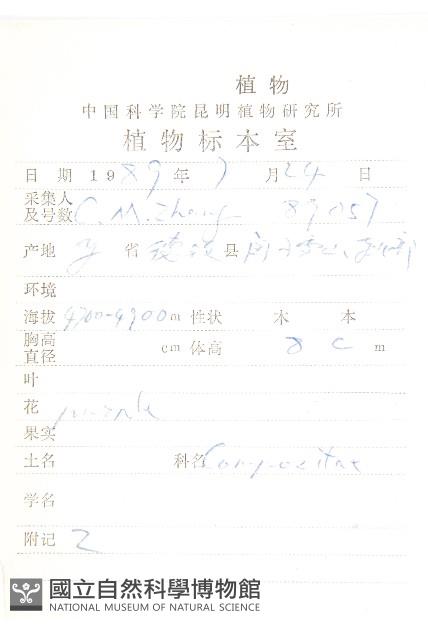 植物
中国科学院昆明植物研究所
植物标本室
日 期 1989 年 7 月 24 日
采集人
及号数 C. M. Zhang 89057
产地 省 县
环境
海拔 4700-4900 m 性状 木 本
胸高
直径 cm 体高 8 c m
叶
花 purple
果实
土名 科名 Compositae
学名
附记 2
國立自然科學博物館
NATIONAL MUSEUM OF NATURAL SCIENCE